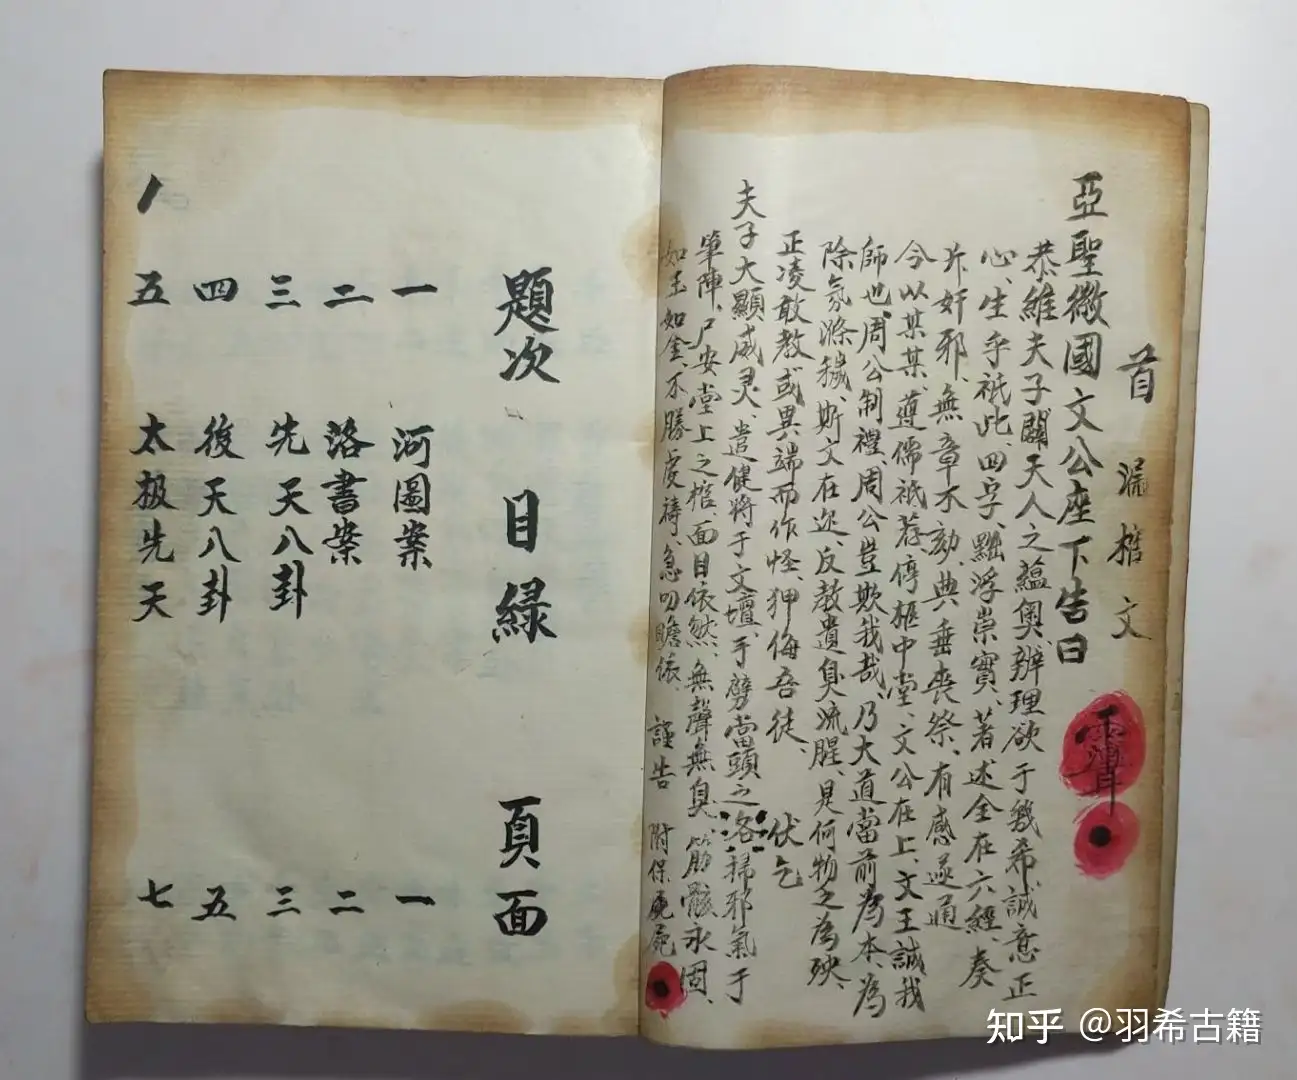 首 漏棺文
亞聖徽國文公座下告曰
恭維夫子闢天人之蘊奧、辨理欲于幾希誠意正
心、生乎祇此四字、黜浮崇實、著述全在六經、奏
斥奸邪、無章不劾、典垂喪祭、有感遂通
今以某某、遵儒祇荐、停柩中堂、文公在上、文王誠我
師也、周公制禮、周公豈欺我哉、乃大道當前為本、為
除氛滌穢、斯文在迩、反教遺臭流腥、是何物之為殃、
正凌敢教或異端而作怪、狎侮吾徒、 伏乞
夫子大顯威灵、遣健將于文壇、手劈當頭之洛掃邪氣于
筆陣、尸安堂上之棺、面目依然、無聲無臭、筋骸永固、
如玉如金、不勝虔禱、急叩瞻依、 謹告 附保屍
題次 目緑 頁面
一 河圖案 一
二 洛書案 二
三 先天八卦 三
四 後天八卦 五
五 太极先天 七
知乎 @羽希古籍